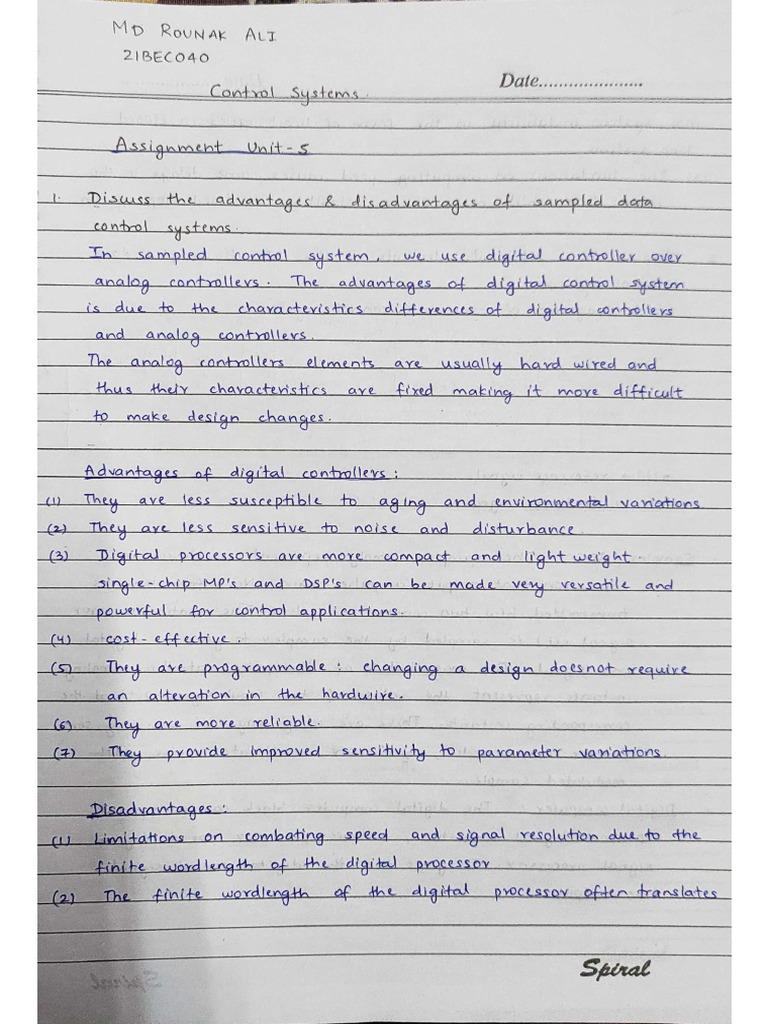 MD ROUNAK ALI
21BEC040
Date......................
Control Systems.
Assignment Unit-5
1. Discuss the advantages & disadvantages of sampled data
control systems.
In sampled control system, we use digital controller over
analog controllers. The advantages of digital control system
is due to the characteristics differences of digital controllers
and analog controllers.
The analog controllers elements are usually hard wired and
thus their characteristics are fixed making it more difficult
to make design changes.
Advantages of digital controllers:
(1) They are less susceptible to aging and environmental variations
(2) They are less sensitive to noise and disturbance
(3) Digital processors are more compact and light weight.
single-chip MP's and DSP's can be made very versatile and
powerful for control applications.
(4) cost-effective.
(5) They are programmable: changing a design doesnot require
an alteration in the hardwire.
(6) They are more reliable.
(7) They provide improved sensitivity to parameter variations.
Disadvantages:
(1) Limitations on combating speed and signal resolution due to the
finite wordlength of the digital processor
(2) The finite wordlength of the digital processor often translates
Spiral